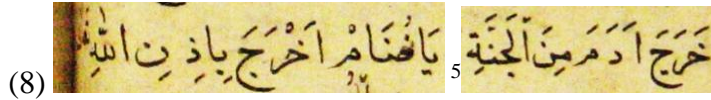 (8) اَخْرَجَ بِاِذِنِ اللّٰهِ 5 خَرَجَ اَدَمَ مِنَ الْجَنَّةِ